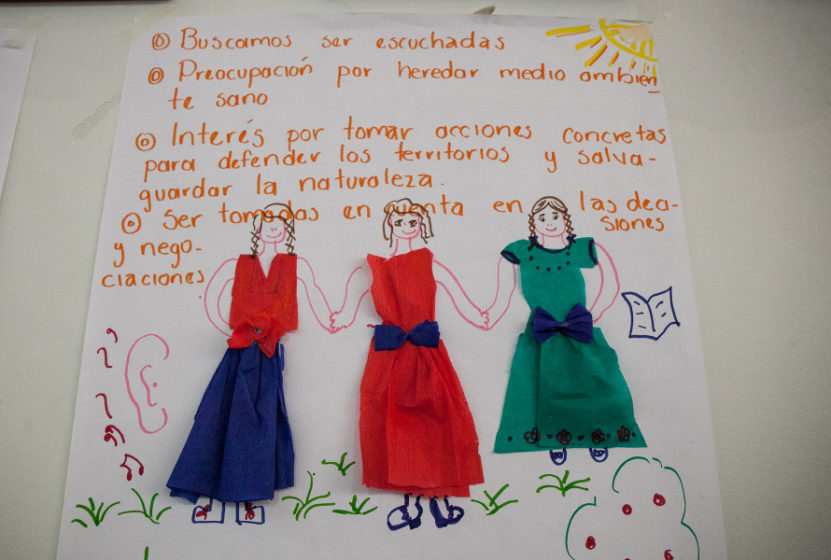 Buscamos ser escuchadas
Preocupación por heredar medio ambien
te sano
Interés por tomar acciones concretas
para defender los territorios y salva-
guardar la naturaleza.
Ser tomadas en cuenta en las deci-
siones
y nego-
ciaciones